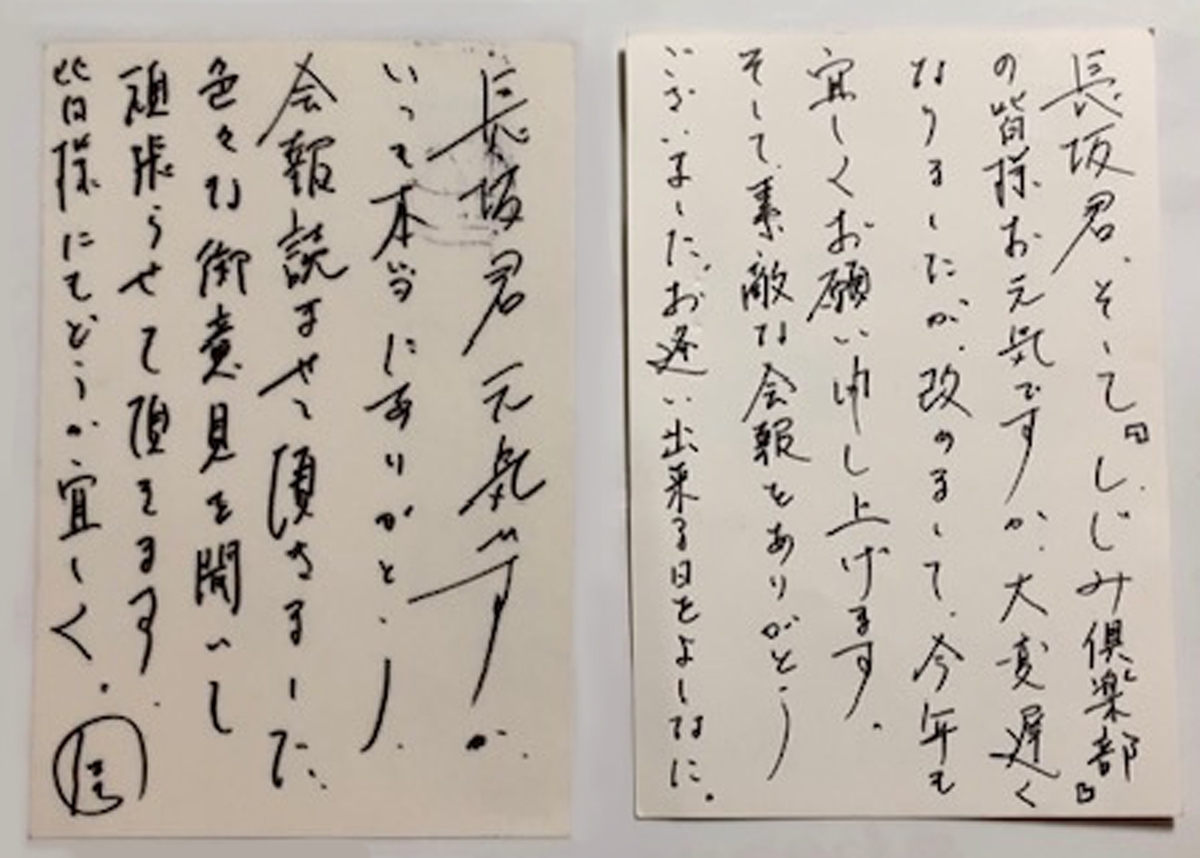 長坂君元気ですか。
いつも本当にありがとう。
会報読ませて頂きました。
色々な御意見を聞いし
頑張らせて頂きます。
皆様にもどうか宜しく。
長坂君、そして『しじみ倶楽部』
の皆様お元気ですか、大変遅く
なりましたが、改めまして、今年も
宜しくお願い申し上げます。
そして、素敵な会報をありがとう
ございました。お逢い出来る日をよしなに。